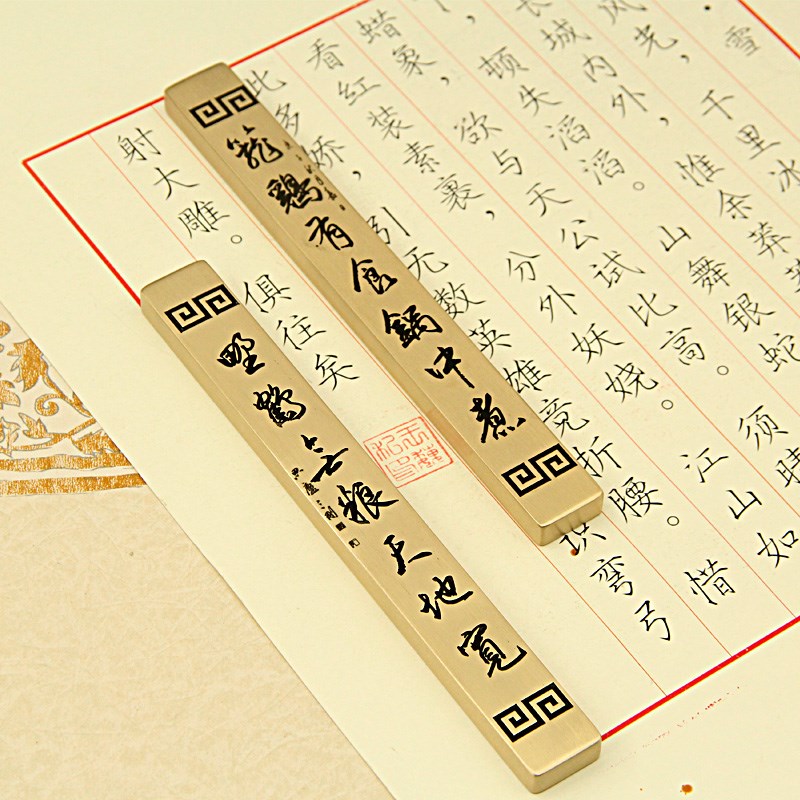 雪
风光，千里冰
长城内外，惟余莽莽
，顿失滔滔。山舞银蛇
蜡象，欲与天公试比高。须晴
看红装素裹，分外妖娆。江山如
此多娇，引无数英雄竞折腰。惜
弯弓
射大雕。俱往矣
籠鷄有食鍋中煮
野鶴無粮天地寬